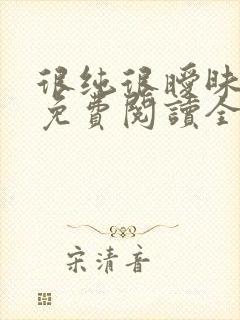 很纯很曖昧
免費閱讀全
宋清音